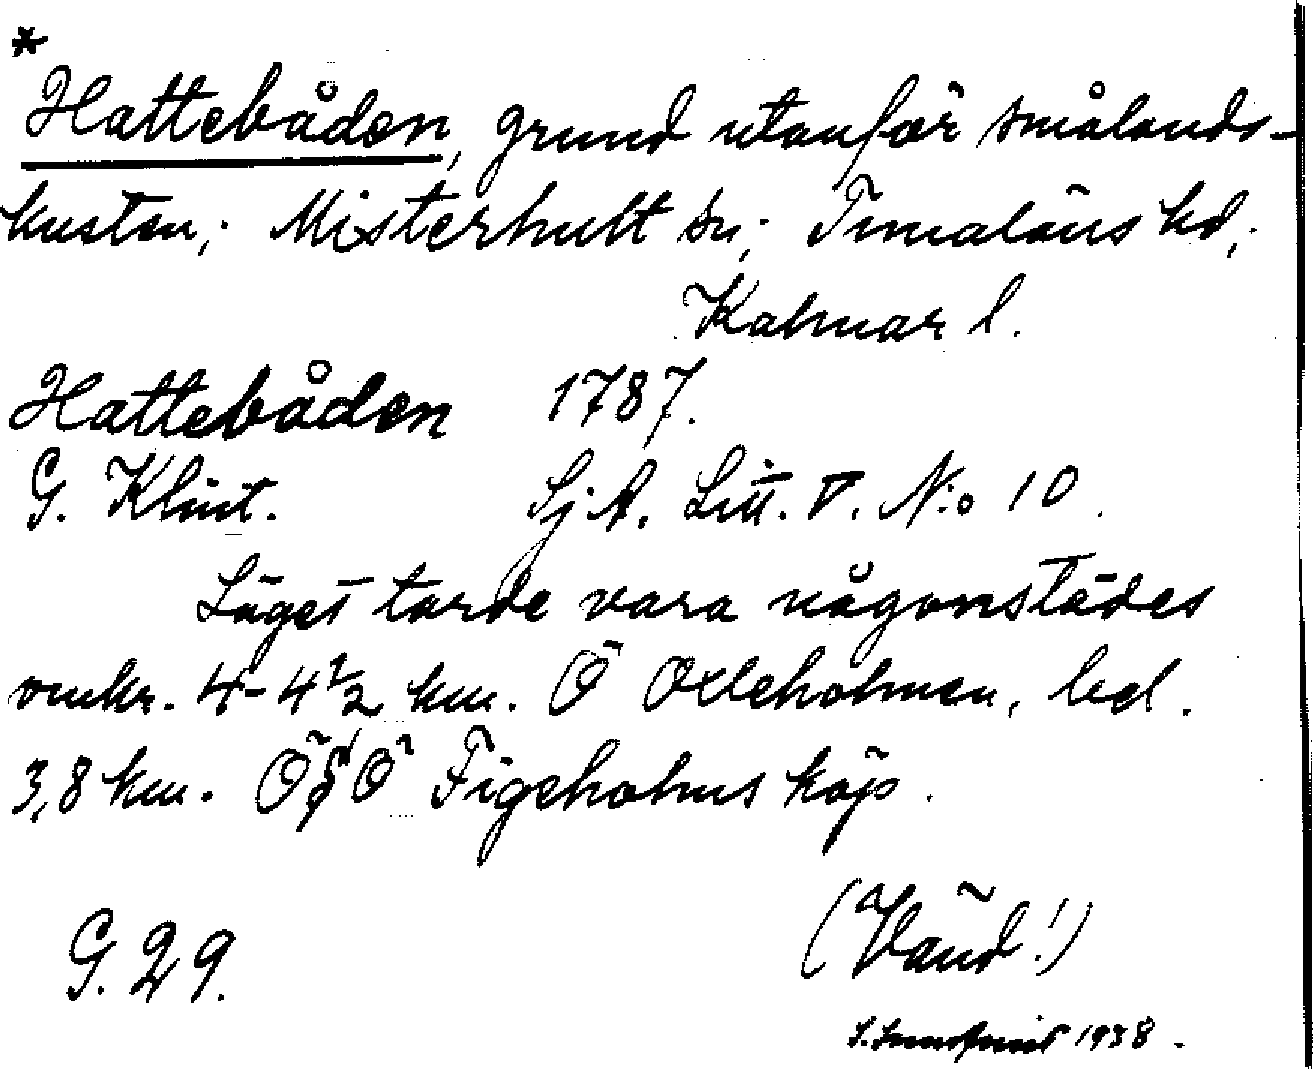 *
Hattebåden, grund utanför smålands-
kusten; Misterhult sn; Tunaläns hd;
Kalmar l.
Hattebåden 1787.
G. Klint. Sj.A. Litt. V. N:o 10.
Läget torde vara någonstädes
omkr. 4-4½ km. Ö Oxleholmen, bel.
3,8 km. ÖSÖ Figeholms köp.
(Vänd!)
G. 29.
1938.